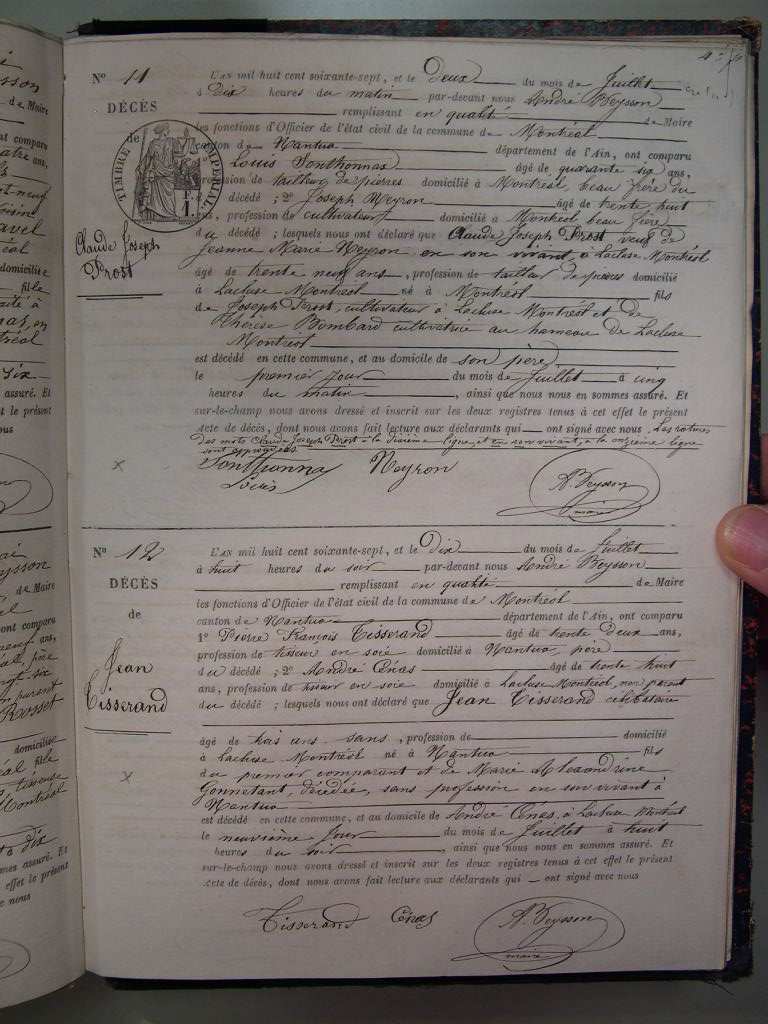 Nº 11
DÉCÈS
de
TIMBRE IMPÉRIAL
1 F.
Claude Joseph
Prost
L'AN mil huit cent soixante-sept, et le Deux du mois de Juillet
à Dix heures du matin par-devant nous André Peysson
remplissant en qualité de Maire
les fonctions d'Officier de l'état civil de la commune de Montréal
canton de Nantua département de l'Ain, ont comparu
Louis Sonthonnax âgé de quarante six ans,
profession de tailleur de pierres domicilié à Montréal, beau frère du
décédé ; 2º Joseph Neyron âgé de trente huit
ans, profession de cultivateur domicilié à Montréal beau frère
du décédé ; lesquels nous ont déclaré que Claude Joseph Prost veuf de
Jeanne Marie Neyron en son vivant, à Lacluse Montréal
âgé de trente neuf ans, profession de tailleur de pierres domicilié
à Lacluse Montréal né à Montréal fils
de Joseph Prost, cultivateur à Lacluse Montréal et de
Thérèse Bombard cultivatrice au hameau de Lacluse
Montréal
est décédé en cette commune, et au domicile de son père
le premier jour du mois de Juillet à cinq
heures du matin, ainsi que nous nous en sommes assuré. Et
sur-le-champ nous avons dressé et inscrit sur les deux registres tenus à cet effet le présent
acte de décès, dont nous avons fait lecture aux déclarants qui ont signé avec nous. Les ratures
des mots Claude Joseph Prost à la dixième ligne, et en son vivant, à la onzième ligne
sont approuvées
Sonthonnax Neyron A. Peysson
Louis maire
Nº 12
DÉCÈS
de
Jean
Tisserand
L'AN mil huit cent soixante-sept, et le Dix du mois de Juillet
à huit heures du soir par-devant nous André Peysson
remplissant en qualité de Maire
les fonctions d'Officier de l'état civil de la commune de Montréal
canton de Nantua département de l'Ain, ont comparu
1º Pierre François Tisserand âgé de trente deux ans,
profession de tisseur en soie domicilié à Nantua, père
du décédé ; 2º André Cénas âgé de trente huit
ans, profession de tisseur en soie domicilié à Lacluse Montréal, non parent
du décédé ; lesquels nous ont déclaré que Jean Tisserand célibataire
âgé de trois ans sans, profession de domicilié
à Lacluse Montréal né à Nantua fils
du premier comparant et de Marie Alexandrine
Gonnetant, décédée, sans profession en son vivant à
Nantua
est décédé en cette commune, et au domicile de André Cénas, à Lacluse Montréal
le neuvième jour du mois de Juillet à huit
heures du soir, ainsi que nous nous en sommes assuré. Et
sur-le-champ nous avons dressé et inscrit sur les deux registres tenus à cet effet le présent
acte de décès, dont nous avons fait lecture aux déclarants qui ont signé avec nous
Tisserand Cénas A. Peysson
maire